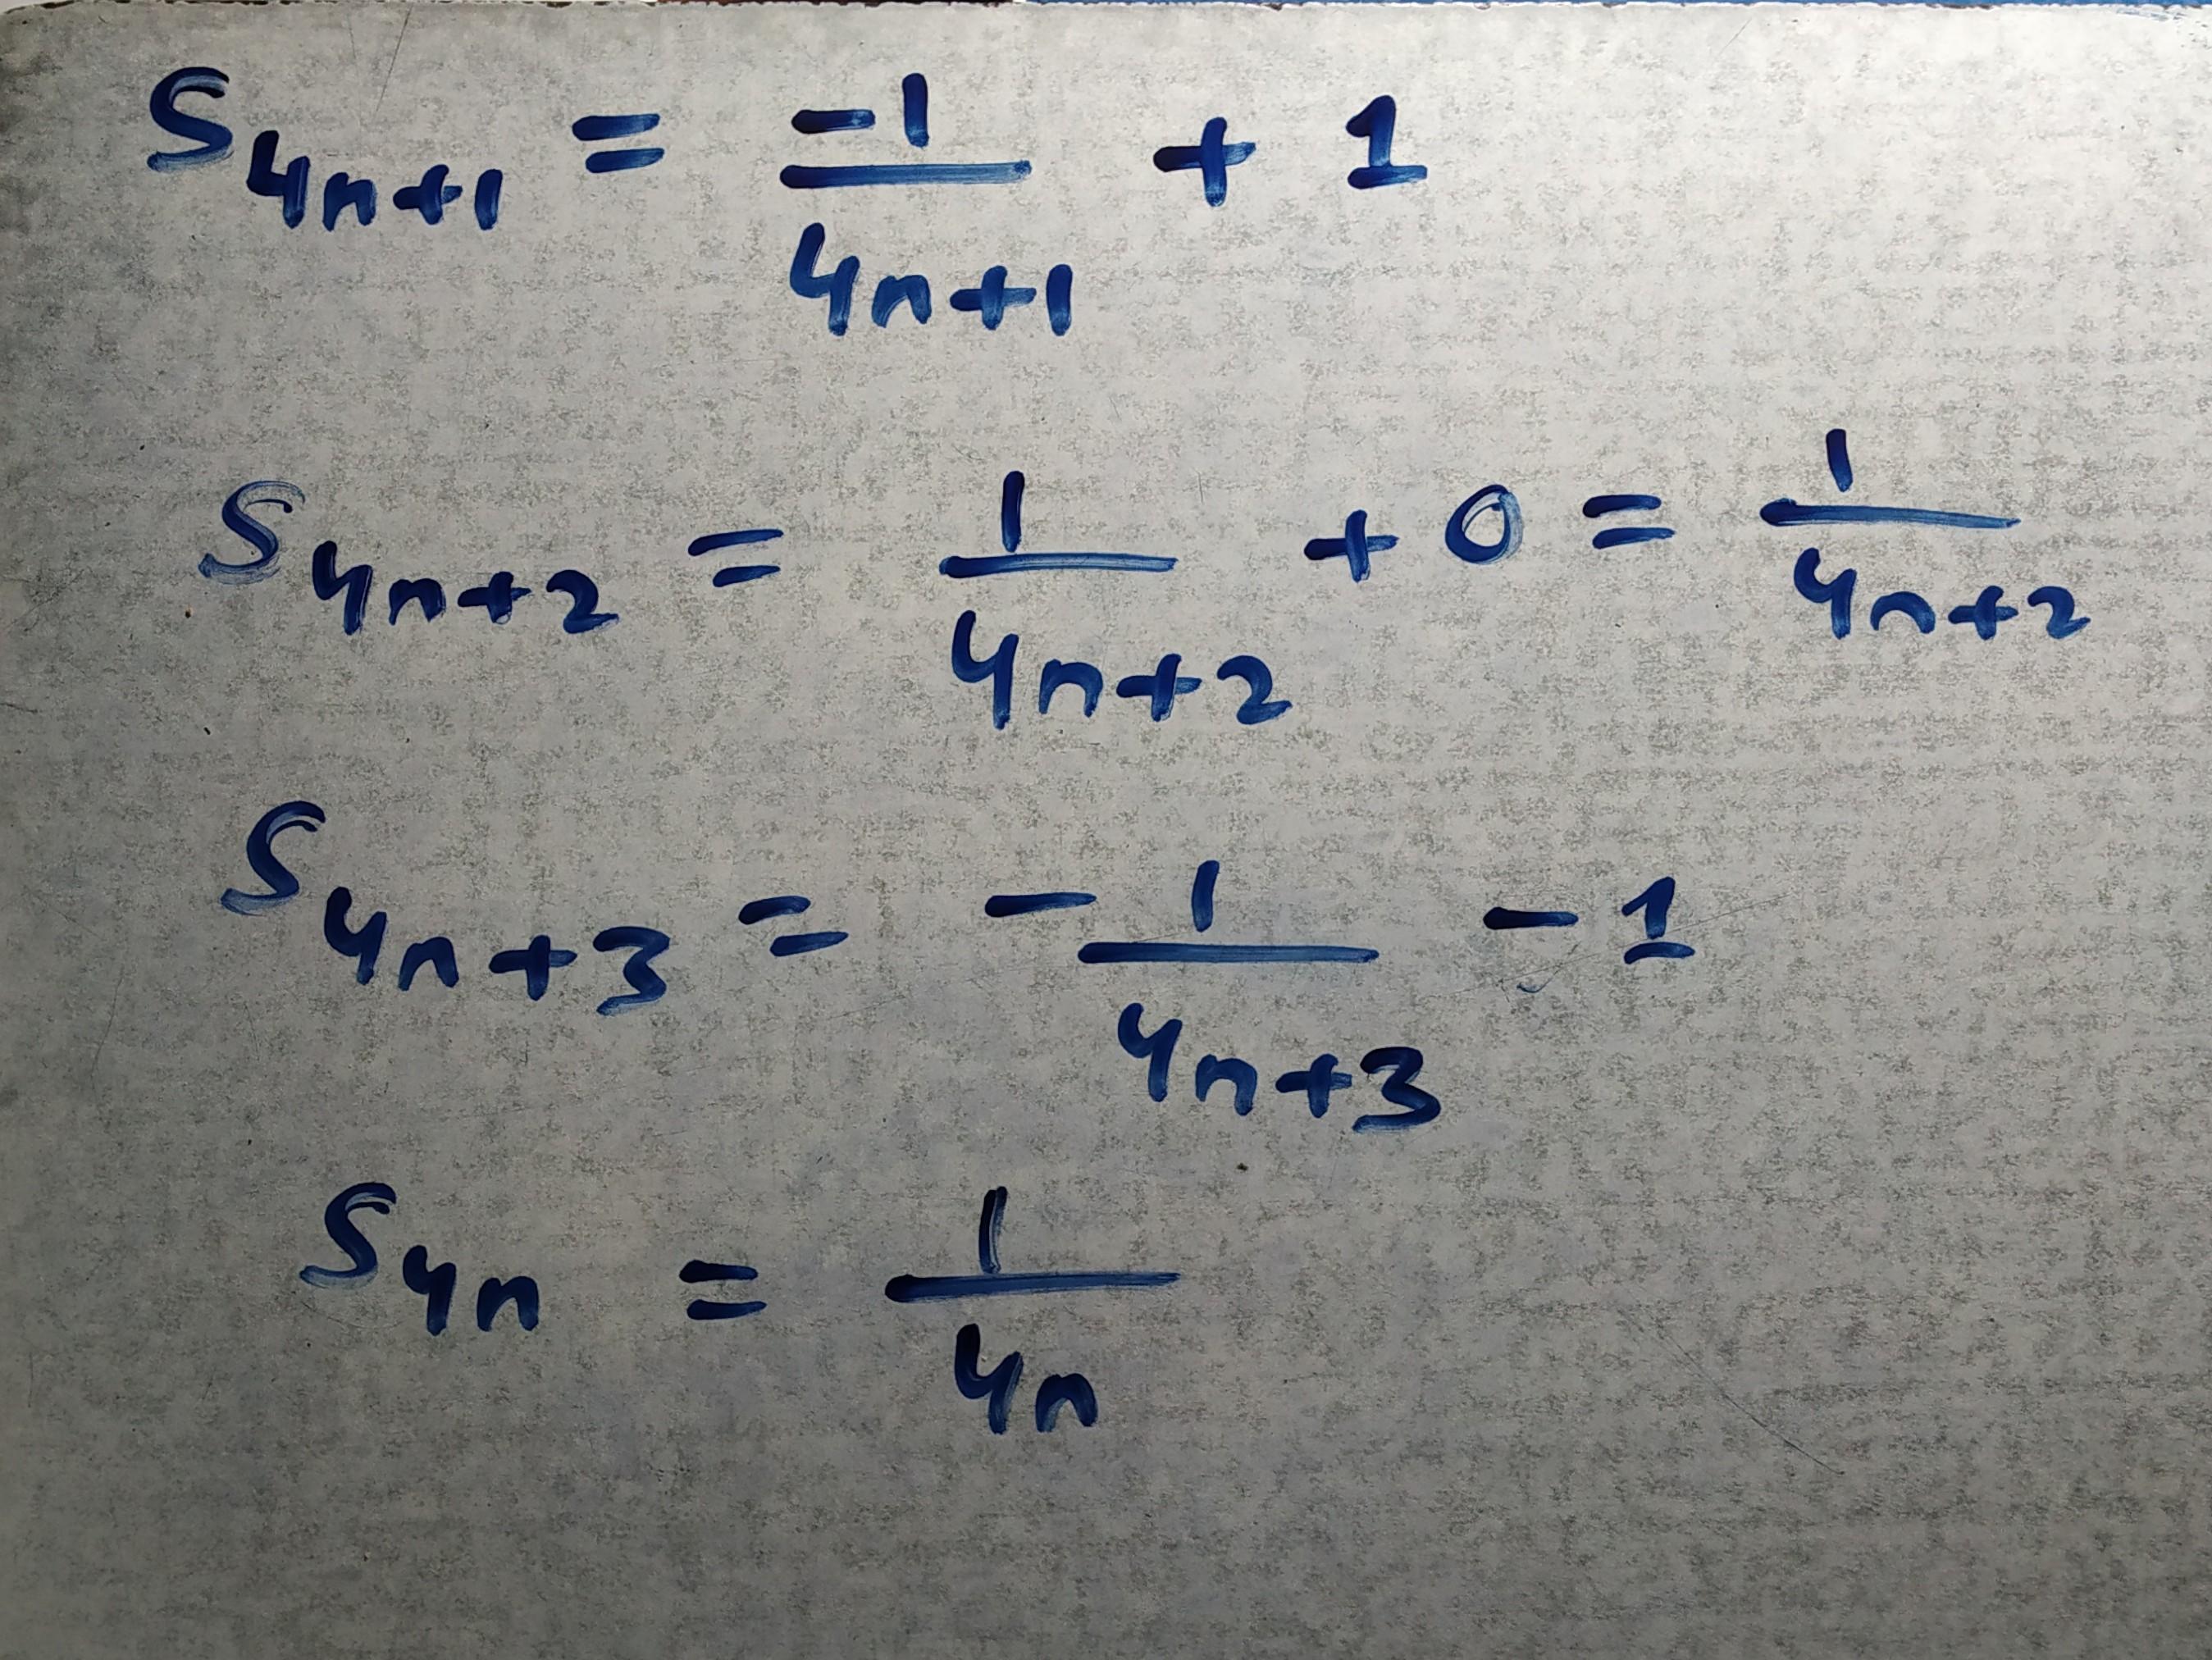 S_{4n+1} = \frac{-1}{4n+1} + 1
S_{4n+2} = \frac{1}{4n+2} + 0 = \frac{1}{4n+2}
S_{4n+3} = - \frac{1}{4n+3} - 1
S_{4n} = \frac{1}{4n}